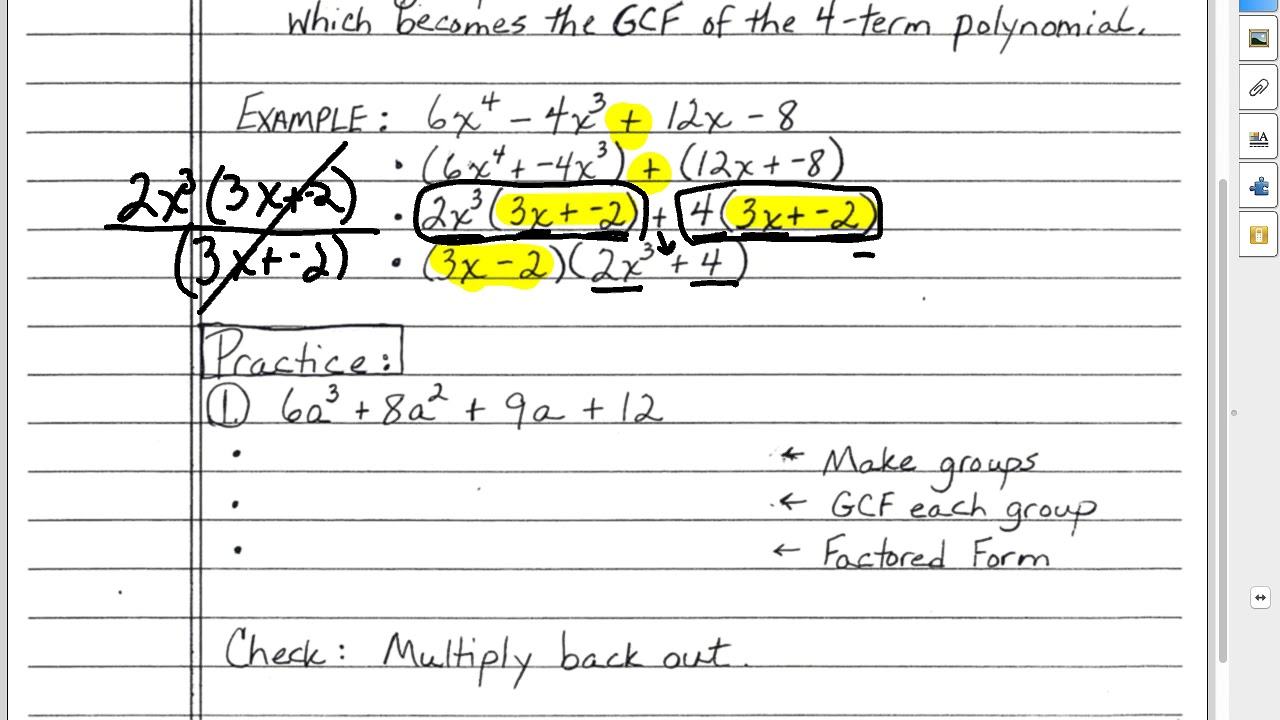 which becomes the GCF of the 4-term polynomial.
EXAMPLE: 6x⁴ - 4x³ + 12x - 8
• (6x⁴ + -4x³) + (12x + -8)
2x³(3x+-2)
• 2x³(3x + -2) + 4(3x + -2)
(3x+-2)
• (3x - 2)(2x³ + 4)
Practice:
① 6a³ + 8a² + 9a + 12
• ← Make groups
• ← GCF each group
• ← Factored Form
Check: Multiply back out.